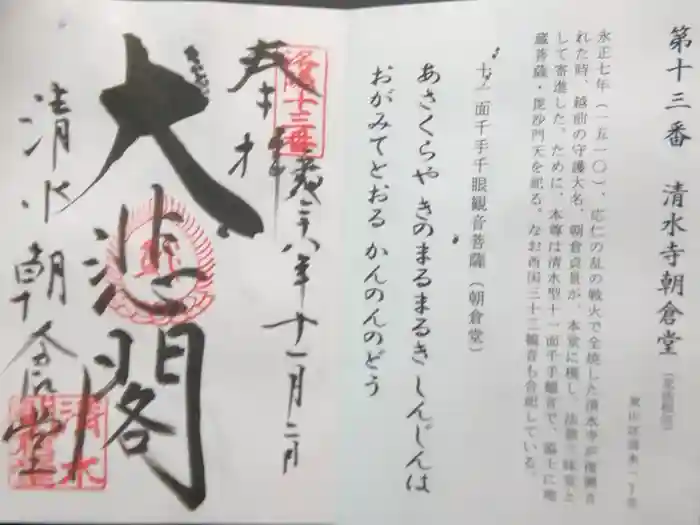 第十三番 清水寺朝倉堂
永正七年(一五一〇)、応仁の乱の戦火で全焼した清水寺が復興さ
れた時、越前の守護大名、朝倉貞景が、本堂に模し、法華三昧堂と
して寄進した。ために、本尊は清水型十一面千手観音で、脇士に地
蔵菩薩・毘沙門天を祀る。なお西国三十三観音も合祀している。
十一面千手千眼観音菩薩(朝倉堂)
あさくらや きのまるまるき しんじんは
おがみてとおる かんのんのどう
奉拝
洛陽十三番
八年十一月二日
大悲閣
清水朝倉堂
清水